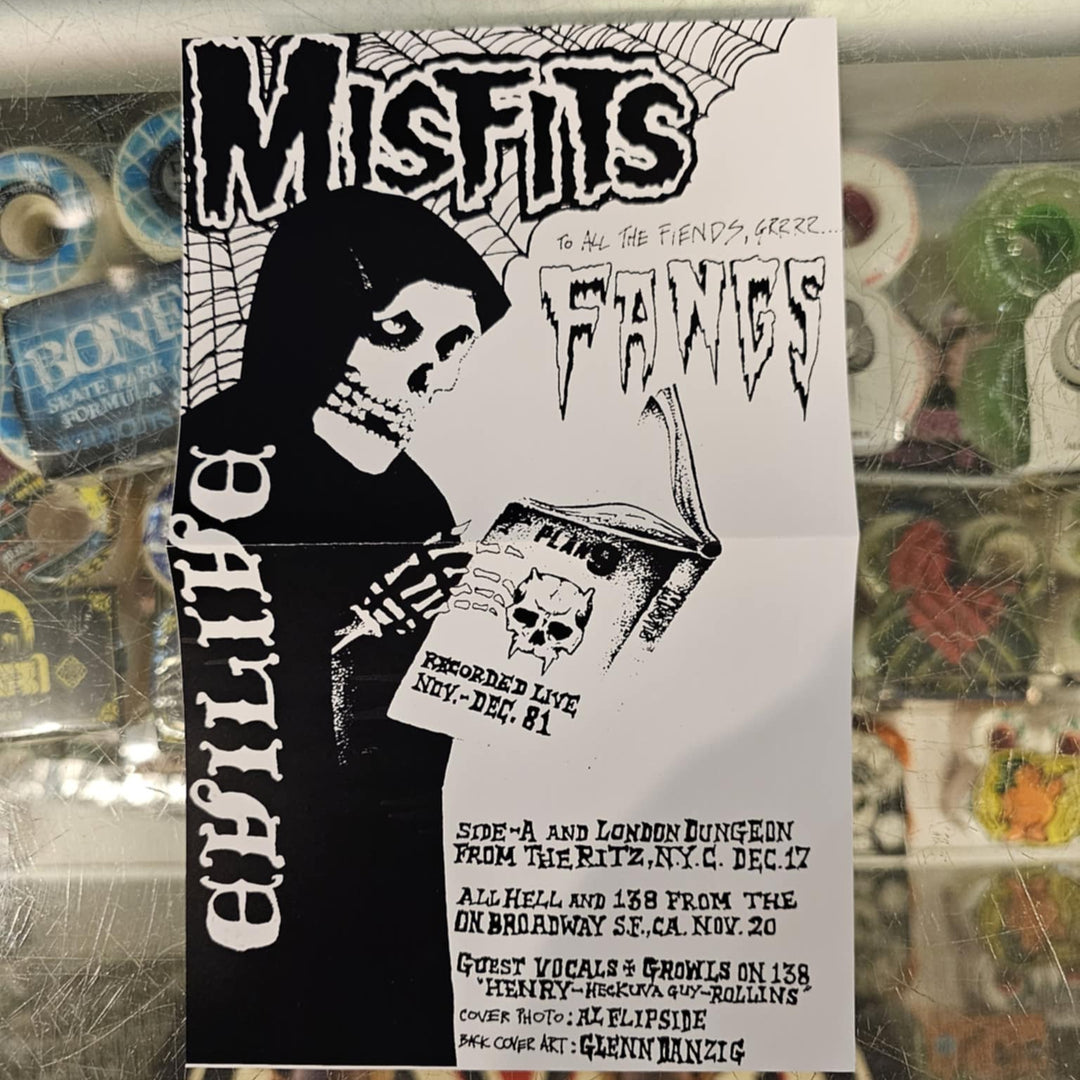 MISFITS
TO ALL THE FIENDS, GRRRR...
FANGS
EVILIVE
PLAN 9
RECORDED LIVE
NOV.-DEC. 81
SIDE-A AND LONDON DUNGEON
FROM THE RITZ, N.Y.C. DEC. 17
ALL HELL AND 138 FROM THE
ON BROADWAY S.F., CA. NOV. 20
GUEST VOCALS + GROWLS ON 138
"HENRY-HECKUVA GUY-ROLLINS"
COVER PHOTO: AL FLIPSIDE
BACK COVER ART: GLENN DANZIG
BONES
SKATE PARK
FORMULA